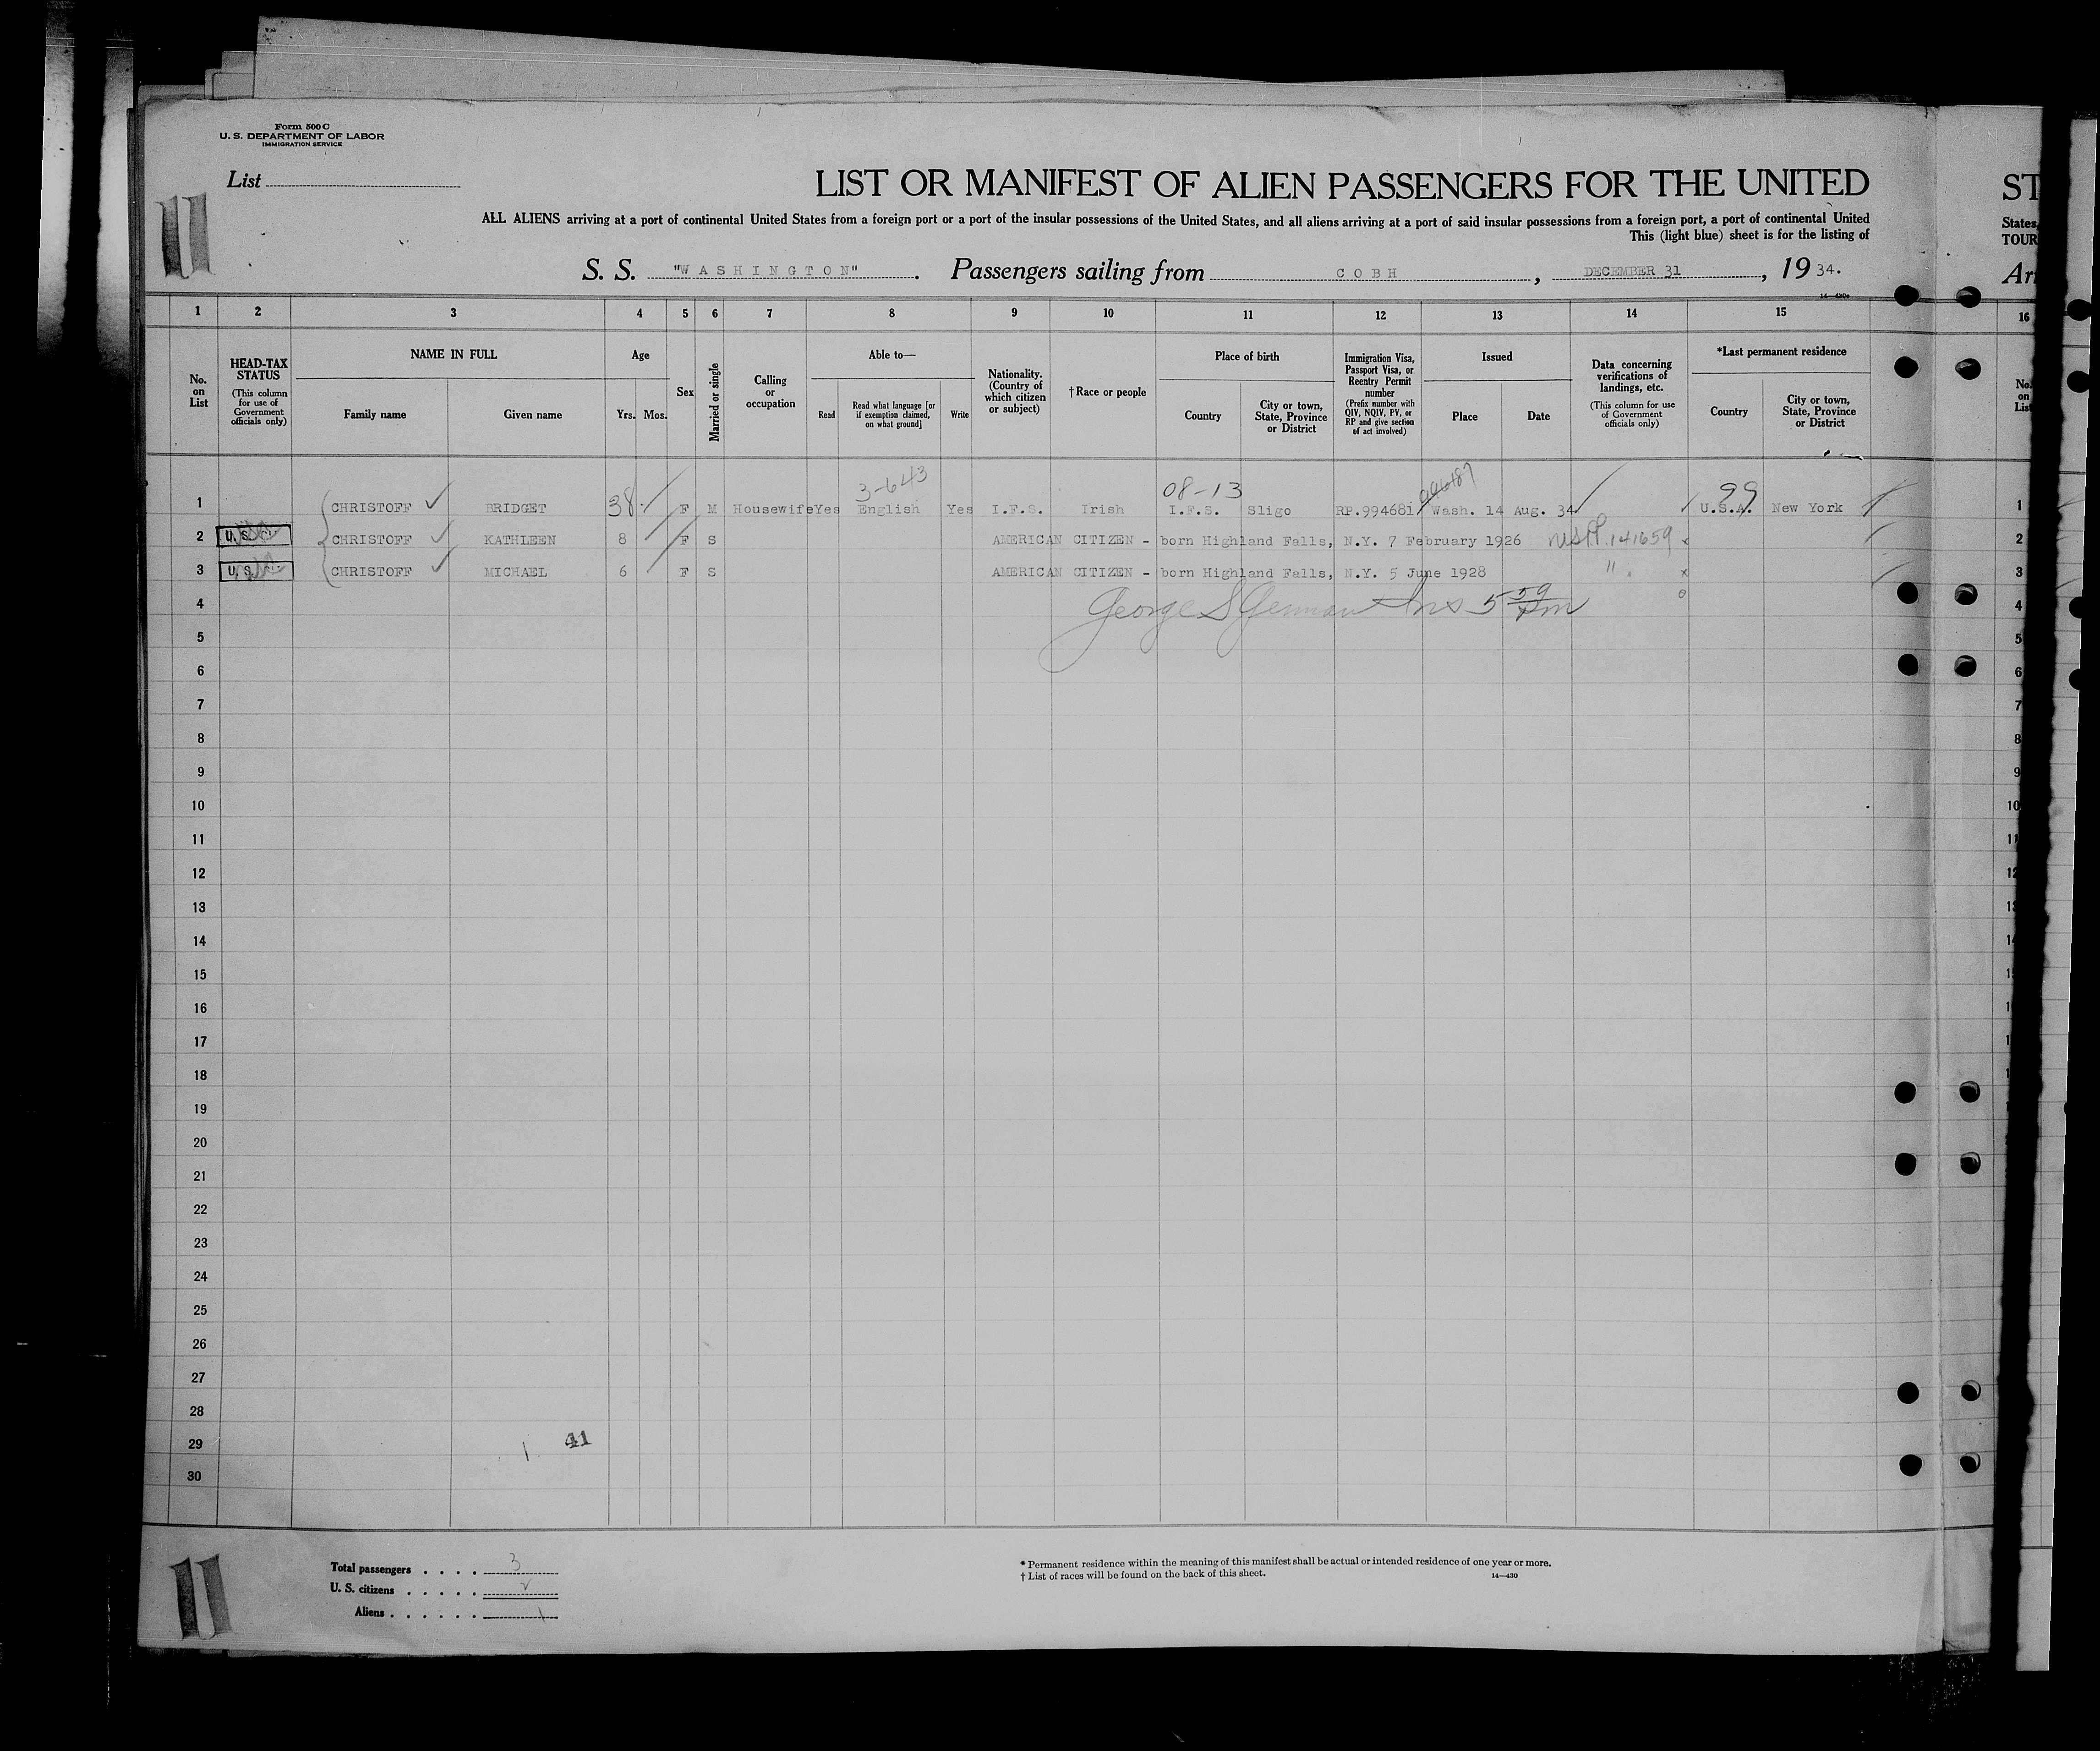 Form 500 C
U. S. DEPARTMENT OF LABOR
IMMIGRATION SERVICE
List
11
LIST OR MANIFEST OF ALIEN PASSENGERS FOR THE UNITED
ST
ALL ALIENS arriving at a port of continental United States from a foreign port or a port of the insular possessions of the United States, and all aliens arriving at a port of said insular possessions from a foreign port, a port of continental United
States,
This (light blue) sheet is for the listing of
TOUR
S. S. "WASHINGTON". Passengers sailing from COBH, DECEMBER 31, 19 34.
Arr
14—430a
1 2 3 4 5 6 7 8 9 10 11 12 13 14 15 16
No. on List
HEAD-TAX STATUS (This column for use of Government officials only)
NAME IN FULL
Family name Given name
Age
Yrs. Mos.
Sex
Married or single
Calling or occupation
Able to—
Read
Read what language [or if exemption claimed, on what ground]
Write
Nationality. (Country of which citizen or subject)
†Race or people
Place of birth
Country
City or town, State, Province or District
Immigration Visa, Passport Visa, or Reentry Permit number (Prefix number with QIV, NQIV, PV, or RP and give section of act involved)
Issued
Place Date
Data concerning verifications of landings, etc. (This column for use of Government officials only)
*Last permanent residence
Country
City or town, State, Province or District
No. on List
3-643 08-13 99
1 CHRISTOFF BRIDGET 38 F M Housewife Yes English Yes I.F.S. Irish I.F.S. Sligo RP.994681 Wash. 14 Aug. 34 U.S.A. New York 1
2 U.S.C. CHRISTOFF KATHLEEN 8 F S AMERICAN CITIZEN - born Highland Falls, N.Y. 7 February 1926 141659 x 2
3 U.S.C. CHRISTOFF MICHAEL 6 F S AMERICAN CITIZEN - born Highland Falls, N.Y. 5 June 1928 " x 3
4 George S German Ins 5 59 pm o 4
5 5
6 6
7 7
8 8
9 9
10 10
11 11
12 12
13 13
14 14
15 15
16
17
18
19
20
21
22
23
24
25
26
27
28
29 41
30
11
Total passengers . . . . 3
U. S. citizens . . . . . 2
Aliens . . . . . . 1
* Permanent residence within the meaning of this manifest shall be actual or intended residence of one year or more.
† List of races will be found on the back of this sheet. 14—430